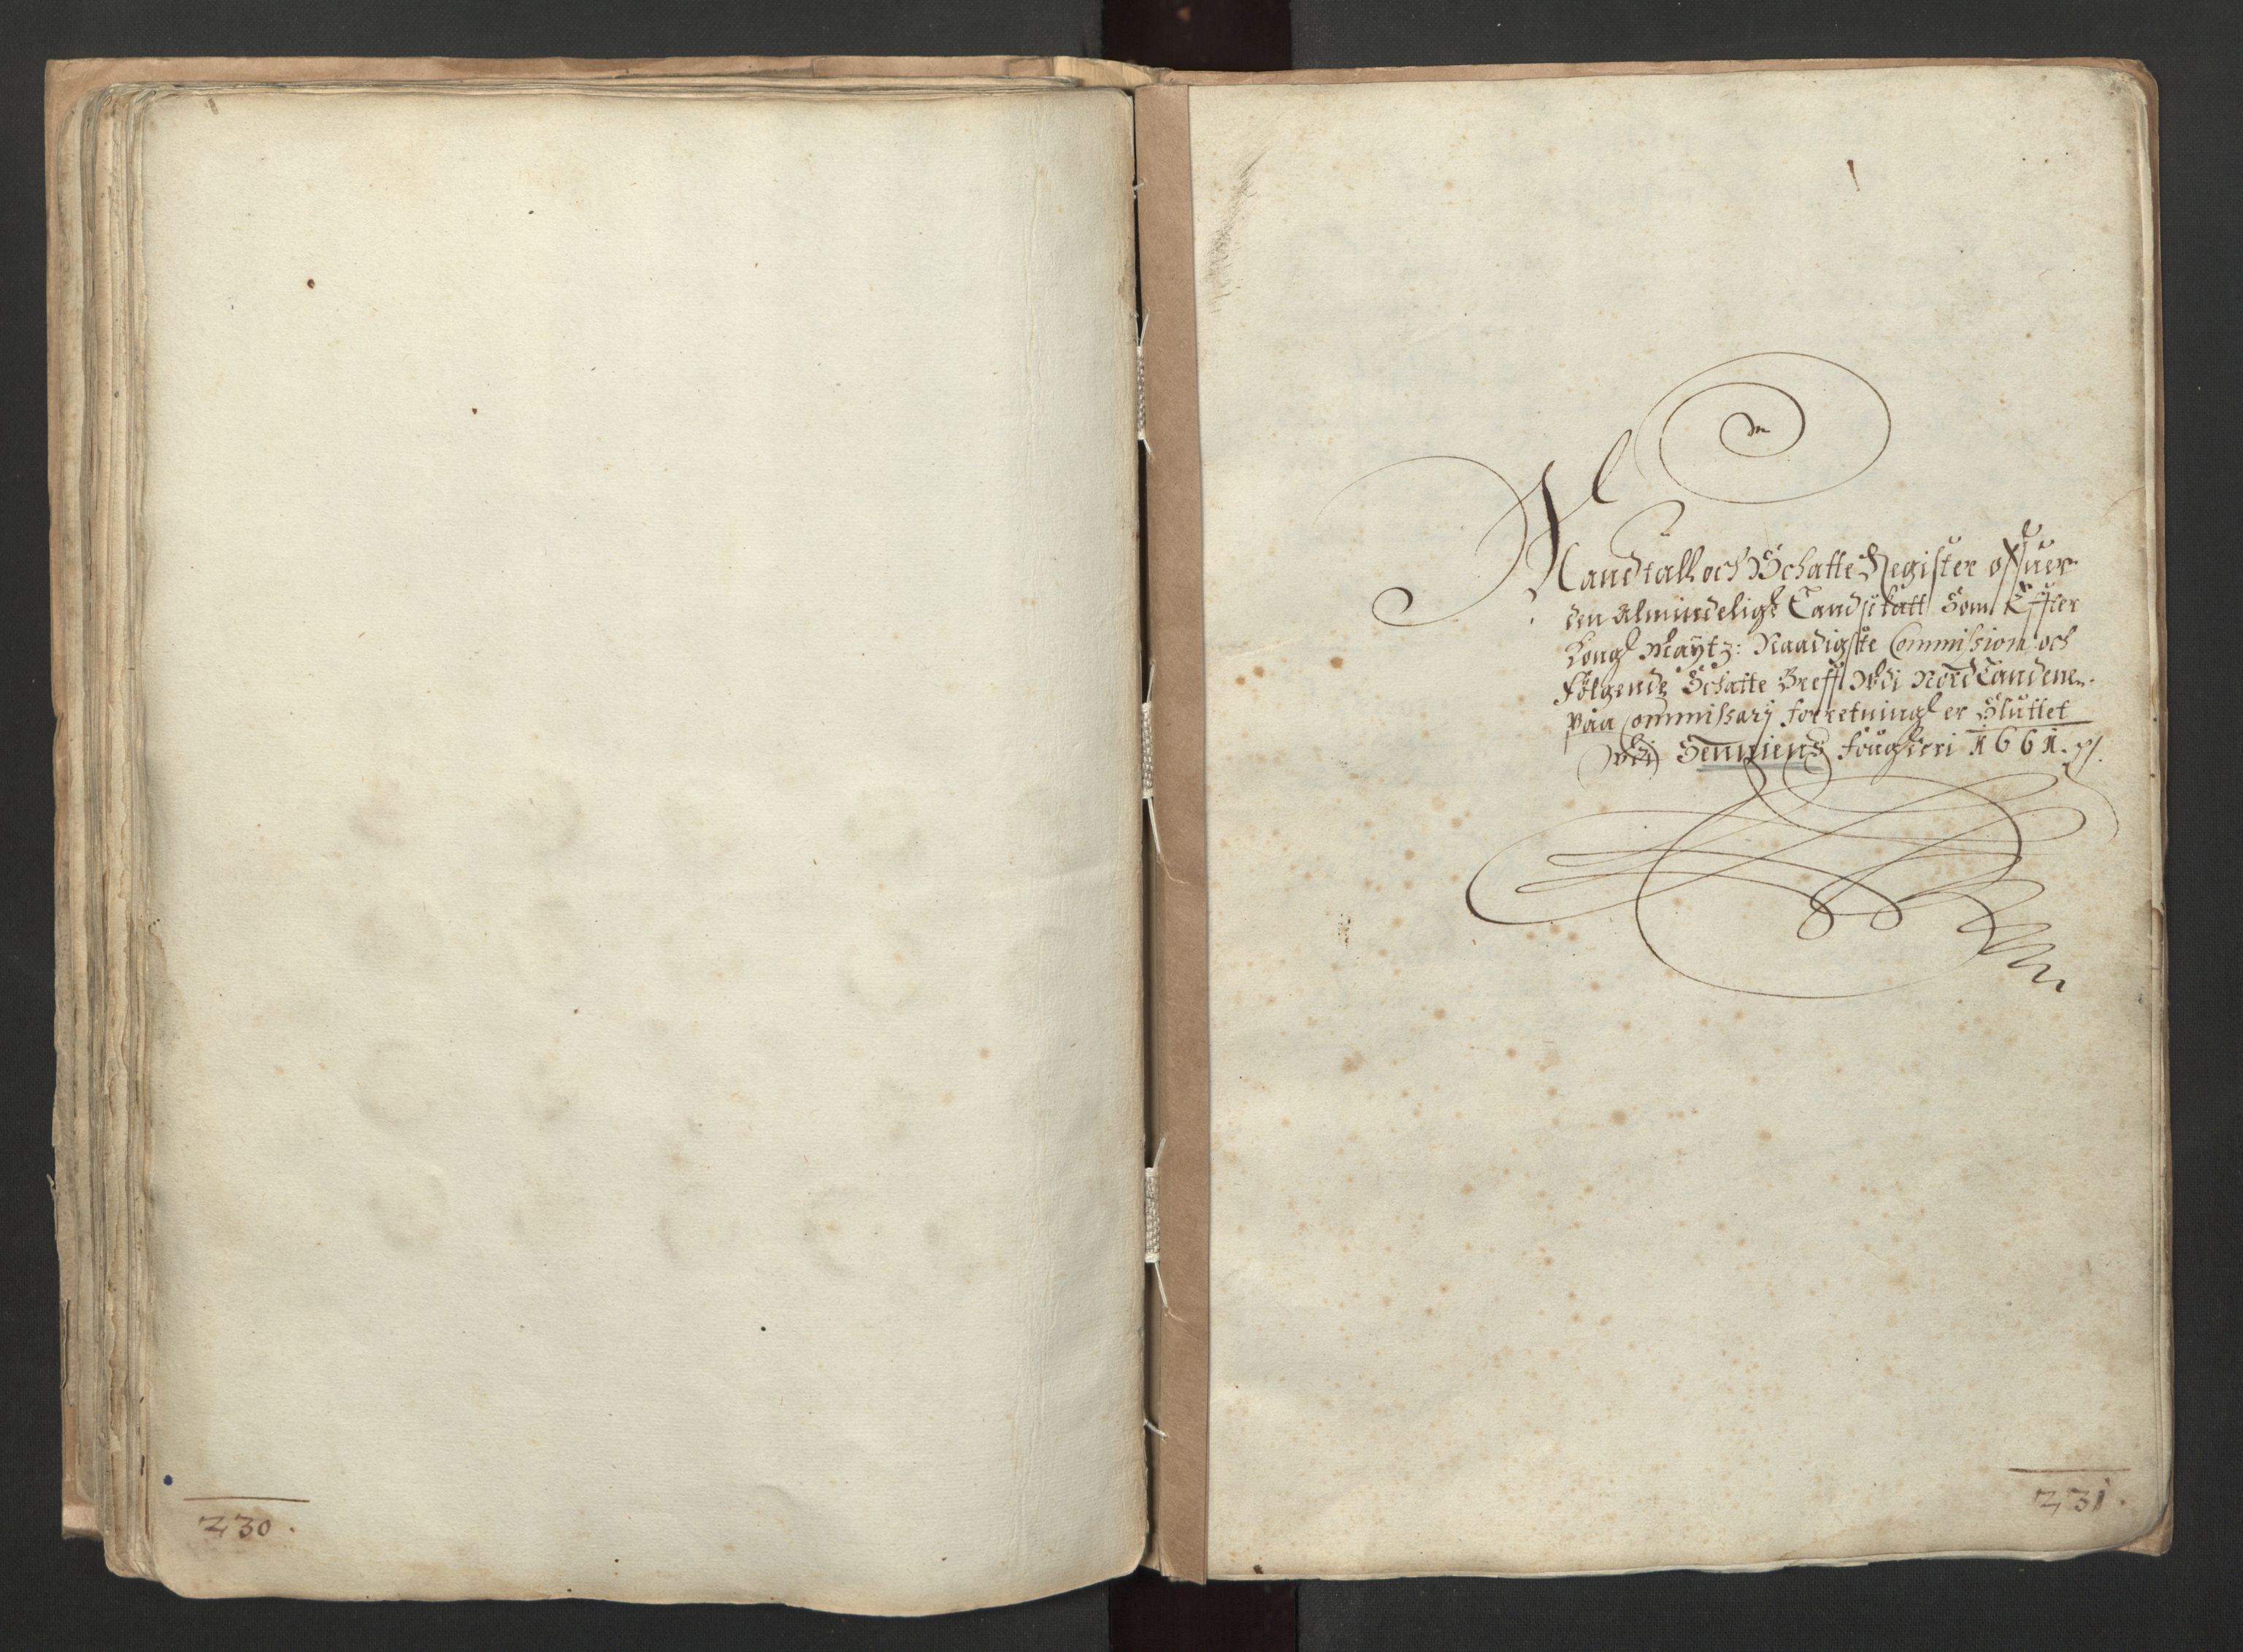 Mandtall och Schatte Register offuer
den Almindelige Landskatt Som Effter
Kongl Maytz: Naadigste Commission och
følgende Schatte Breff Vdi NordLandene
paa Commissarj forretningl er Sluttet
Vdi Senniens fougderi 1661.
230.
231.